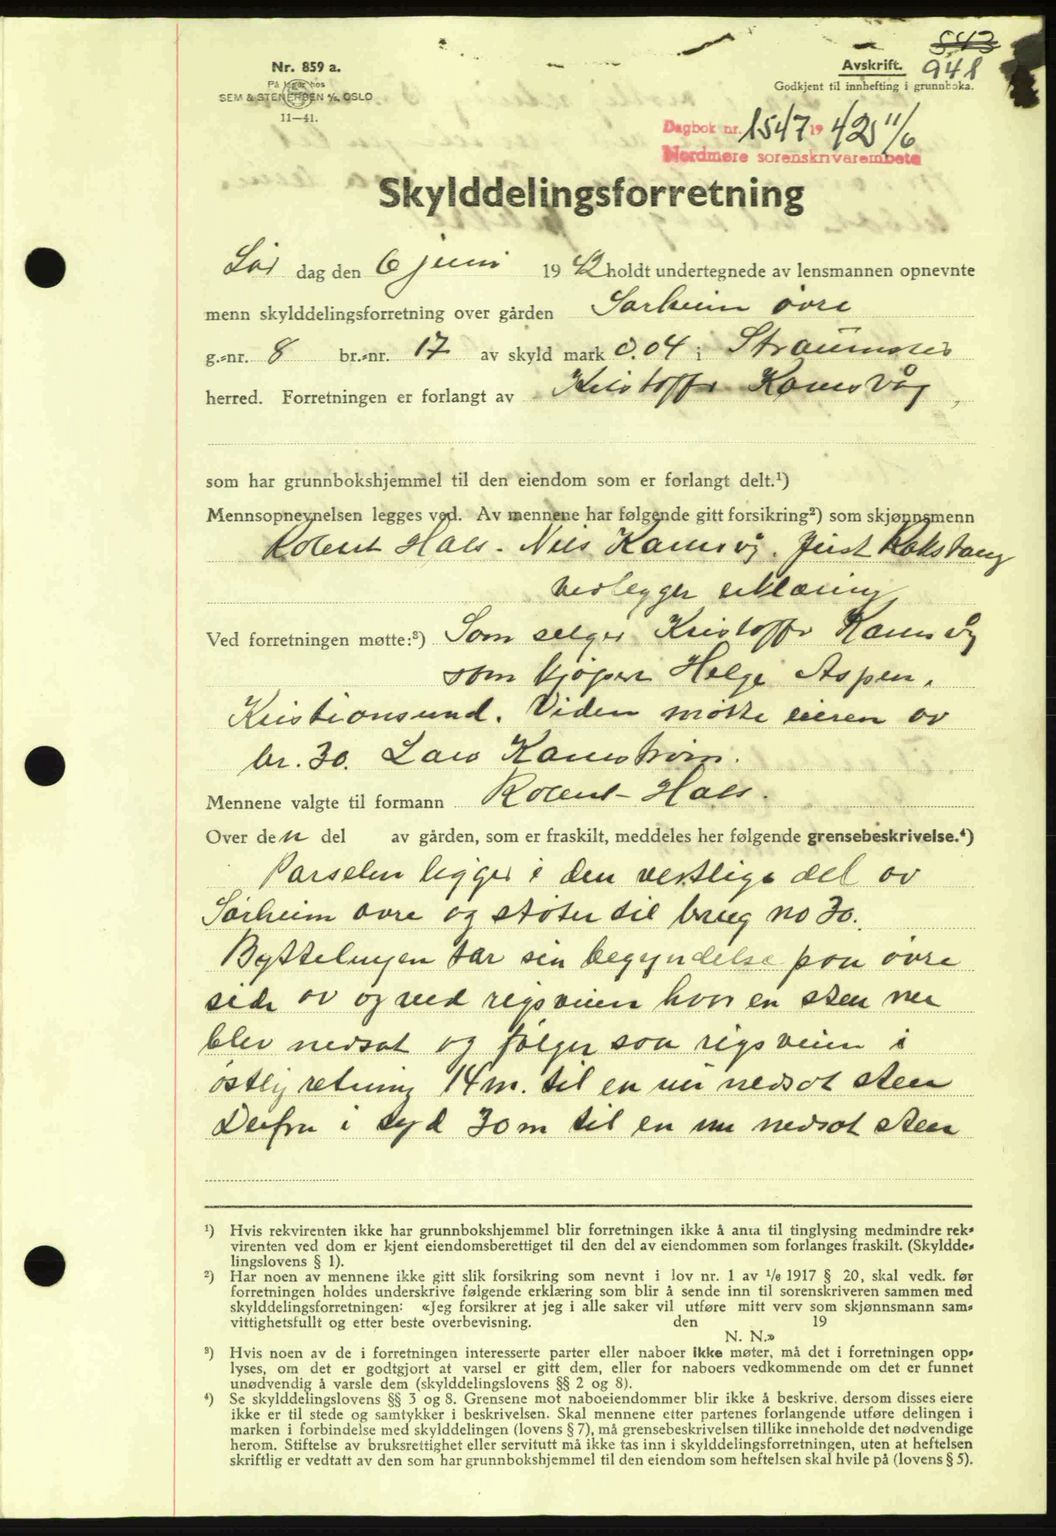 843
948
Nr. 859 a.
På lager hos
SEM & STENERSEN A/S, OSLO
11—41.
Avskrift.
Godkjent til innhefting i grunnboka.
Dagbok nr. 1547 1942 11/6
Nordmøre sorenskrivarembete
Skylddelingsforretning
Lør dag den 6 juni 1942 holdt undertegnede av lensmannen opnevnte
menn skylddelingsforretning over gården Sørheim øvre
g.-nr. 8 br.-nr. 17 av skyld mark 0.04 i Straumsnes
herred. Forretningen er forlangt av Kristoffer Kamsvåg,
som har grunnbokshjemmel til den eiendom som er forlangt delt.¹)
Mennsopnevnelsen legges ved. Av mennene har følgende gitt forsikring²) som skjønnsmenn
Robert Hals. Nils Kamsvåg. Just Rokstang
vedlegger erklæring
Ved forretningen møtte:³) Som selger Kristoffer Kamsvåg
som kjøper Helge Aspen,
Kristiansund. Viden møtte eieren av
br. 30. Lars Kamstrøm.
Mennene valgte til formann Robert Hals.
Over den del av gården, som er fraskilt, meddeles her følgende grensebeskrivelse.⁴)
Parselen ligger i den vestlige del av
Sørheim øvre og støter til brug no 30.
Byttelinjen tar sin begyndelse paa øvre
side av og ved rigsveien hvor en sten nu
blev nedsat og følger saa rigsveien i
østlig retning 14 m. til en nu nedsat sten
Derfra i syd 30 m til en nu nedsat sten
¹) Hvis rekvirenten ikke har grunnbokshjemmel blir forretningen ikke å anta til tinglysing medmindre rek-
virenten ved dom er kjent eiendomsberettiget til den del av eiendommen som forlanges fraskilt. (Skyldde-
lingslovens § 1).
²) Har noen av mennene ikke gitt slik forsikring som nevnt i lov nr. 1 av 1/6 1917 § 20, skal vedk. før
forretningen holdes underskrive følgende erklæring som blir å sende inn til sorenskriveren sammen med
skylddelingsforretningen: «Jeg forsikrer at jeg i alle saker vil utføre mitt verv som skjønnsmann sam-
vittighetsfullt og etter beste overbevisning. den 19
N. N.»
³) Hvis noen av de i forretningen interesserte parter eller naboer ikke møter, må det i forretningen opp-
lyses, om det er godtgjort at varsel er gitt dem, eller for naboers vedkommende om det er funnet
unødvendig å varsle dem (skylddelingslovens §§ 2 og 8).
⁴) Se skylddelingslovens §§ 3 og 8. Grensene mot naboeiendommer blir ikke å beskrive, dersom disses eiere
ikke er til stede og samtykker i beskrivelsen. Skal mennene etter partenes forlangende utføre delingen i
marken i forbindelse med skylddelingen (lovens § 7), må grensebeskrivelsen tillike inneholde det nødvendige
herom. Stiftelse av bruksrettighet eller servitutt må ikke tas inn i skylddelingsforretningen, uten at heftelsen
skriftlig er vedtatt av den som har grunnbokshjemmel til den eiendom som heftelsen skal hvile på (lovens § 5).